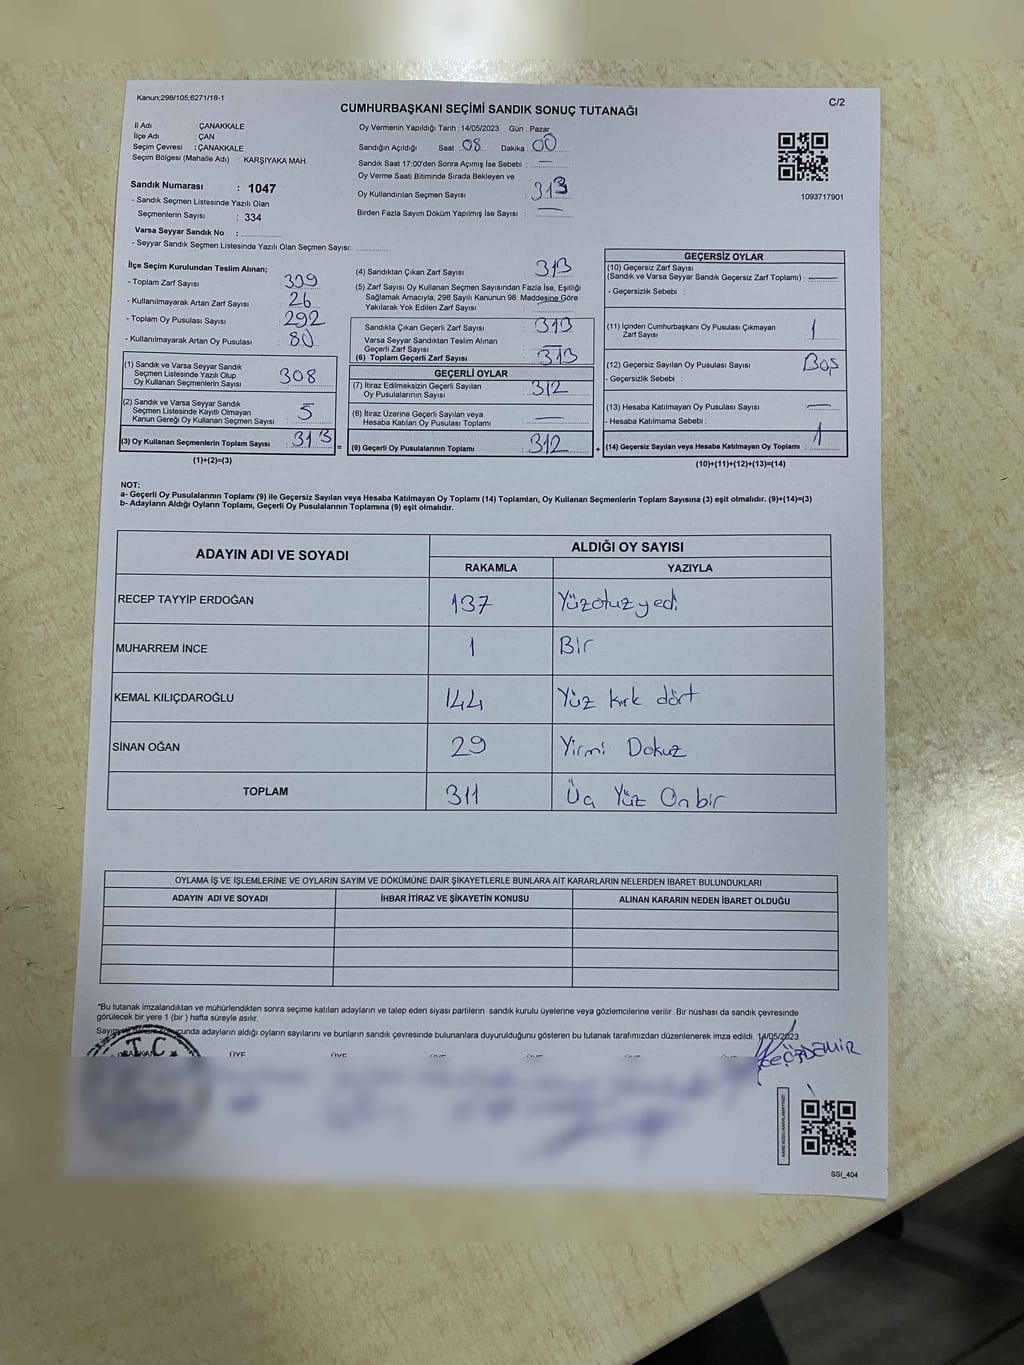 Kanun;298/105,6271/18-1
C/2
CUMHURBAŞKANI SEÇİMİ SANDIK SONUÇ TUTANAĞI
İl Adı : ÇANAKKALE
İlçe Adı : ÇAN
Seçim Çevresi : ÇANAKKALE
Seçim Bölgesi (Mahalle Adı) : KARŞIYAKA MAH.
Sandık Numarası : 1047
- Sandık Seçmen Listesinde Yazılı Olan
Seçmenlerin Sayısı : 334
Varsa Seyyar Sandık No :
- Seyyar Sandık Seçmen Listesinde Yazılı Olan Seçmen Sayısı:
Oy Vermenin Yapıldığı Tarih : 14/05/2023 Gün : Pazar
Sandığın Açıldığı Saat : 08 Dakika : 00
Sandık Saat 17:00'den Sonra Açımış İse Sebebi : —
Oy Verme Saati Bitiminde Sırada Bekleyen ve
Oy Kullandırılan Seçmen Sayısı : 313
Birden Fazla Sayım Döküm Yapılmış İse Sayısı : —
1093717901
İlçe Seçim Kurulundan Teslim Alınan;
- Toplam Zarf Sayısı : 339
- Kullanılmayarak Artan Zarf Sayısı : 26
- Toplam Oy Pusulası Sayısı : 292
- Kullanılmayarak Artan Oy Pusulası : 80
(1) Sandık ve Varsa Seyyar Sandık
Seçmen Listesinde Yazılı Olup
Oy Kullanan Seçmenlerin Sayısı : 308
(2) Sandık ve Varsa Seyyar Sandık
Seçmen Listesinde Kayıtlı Olmayan
Kanun Gereği Oy Kullanan Seçmen Sayısı : 5
(3) Oy Kullanan Seçmenlerin Toplam Sayısı : 313 =
(1)+(2)=(3)
(4) Sandıktan Çıkan Zarf Sayısı : 313
(5) Zarf Sayısı Oy Kullanan Seçmen Sayısından Fazla İse, Eşitliği
Sağlamak Amacıyla; 298 Sayılı Kanunun 98. Maddesine Göre
Yakılarak Yok Edilen Zarf Sayısı : —
Sandıkta Çıkan Geçerli Zarf Sayısı : 313
Varsa Seyyar Sandıktan Teslim Alınan
Geçerli Zarf Sayısı : —
(6) Toplam Geçerli Zarf Sayısı : 313
GEÇERLİ OYLAR
(7) İtiraz Edilmeksizin Geçerli Sayılan
Oy Pusulalarının Sayısı : 312
(8) İtiraz Üzerine Geçerli Sayılan veya
Hesaba Katılan Oy Pusulası Toplamı : —
(9) Geçerli Oy Pusulalarının Toplamı : 312 +
GEÇERSİZ OYLAR
(10) Geçersiz Zarf Sayısı
(Sandık ve Varsa Seyyar Sandık Geçersiz Zarf Toplamı) : —
- Geçersizlik Sebebi :
(11) İçinden Cumhurbaşkanı Oy Pusulası Çıkmayan
Zarf Sayısı : 1
(12) Geçersiz Sayılan Oy Pusulası Sayısı : Boş
- Geçersizlik Sebebi :
(13) Hesaba Katılmayan Oy Pusulası Sayısı : —
- Hesaba Katılmama Sebebi :
(14) Geçersiz Sayılan veya Hesaba Katılmayan Oy Toplamı : 1
(10)+(11)+(12)+(13)=(14)
NOT:
a- Geçerli Oy Pusulalarının Toplamı (9) ile Geçersiz Sayılan veya Hesaba Katılmayan Oy Toplamı (14) Toplamları, Oy Kullanan Seçmenlerin Toplam Sayısına (3) eşit olmalıdır. (9)+(14)=(3)
b- Adayların Aldığı Oyların Toplamı, Geçerli Oy Pusulalarının Toplamına (9) eşit olmalıdır.
ADAYIN ADI VE SOYADI ALDIĞI OY SAYISI
RAKAMLA YAZIYLA
RECEP TAYYİP ERDOĞAN 137 Yüzotuzyedi
MUHARREM İNCE 1 Bir
KEMAL KILIÇDAROĞLU 144 Yüz kırk dört
SİNAN OĞAN 29 Yirmi Dokuz
TOPLAM 311 Üç Yüz Onbir
OYLAMA İŞ VE İŞLEMLERİNE VE OYLARIN SAYIM VE DÖKÜMÜNE DAİR ŞİKAYETLERLE BUNLARA AİT KARARLARIN NELERDEN İBARET BULUNDUKLARI
ADAYIN ADI VE SOYADI İHBAR İTİRAZ VE ŞİKAYETİN KONUSU ALINAN KARARIN NEDEN İBARET OLDUĞU
*Bu tutanak imzalandıktan ve mühürlendikten sonra seçime katılan adayların ve talep eden siyasi partilerin sandık kurulu üyelerine veya gözlemcilerine verilir. Bir nüshası da sandık çevresinde
görülecek bir yere 1 (bir ) hafta süreyle asılır.
adayların aldığı oyların sayılarını ve bunların sandık çevresinde bulunanlara duyurulduğunu gösteren bu tutanak tarafımızdan düzenlenerek imza edildi. 14/05/2023
T.C.
BAŞKAN ÜYE ÜYE ÜYE ÜYE ÜYE ÜYE
SSI_404